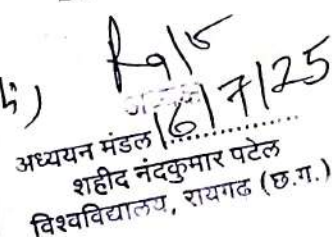 अध्यक्ष
16/7/25
अध्ययन मंडल ..............
शहीद नंदकुमार पटेल
विश्वविद्यालय, रायगढ (छ.ग.)